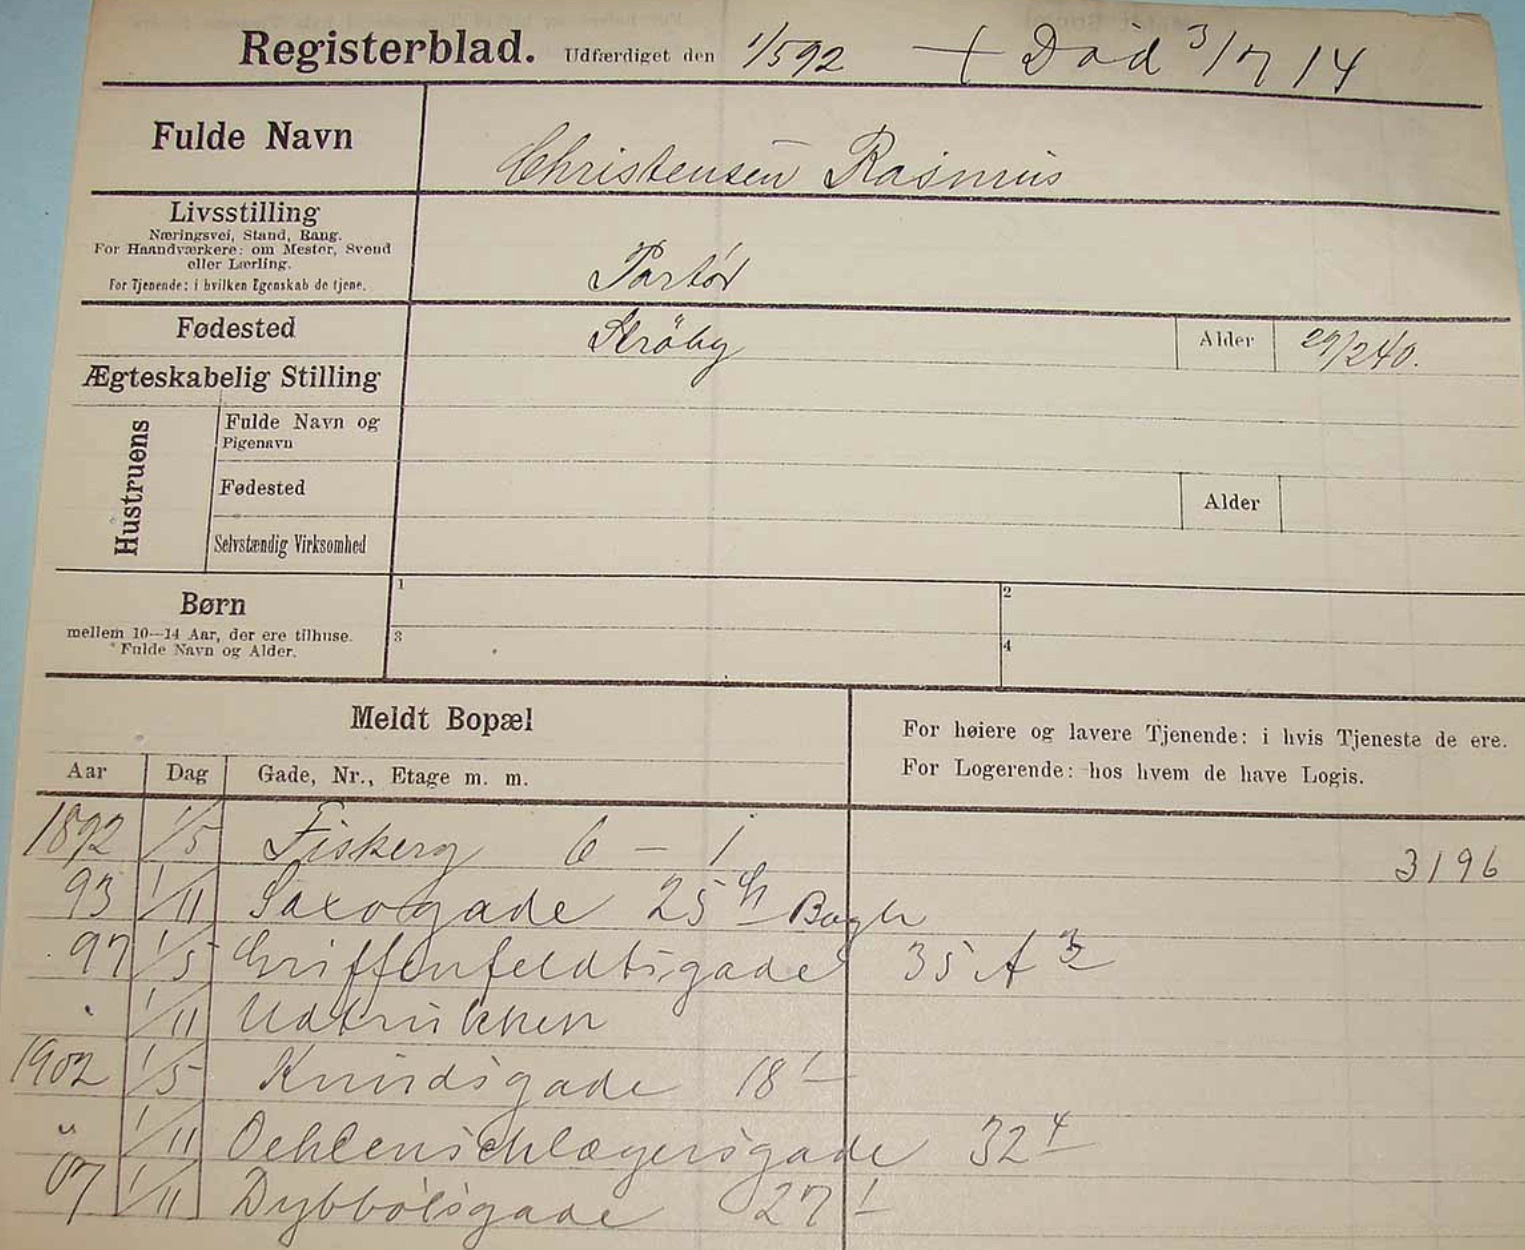 Registerblad. Udfærdiget den 1/5 92 + Död 3/7 14
Fulde Navn Christensen Rasmus
Livsstilling
Næringsvei, Stand, Rang.
For Haandværkere: om Mester, Svend
eller Lærling.
For Tjenende: i hvilken Egenskab de tjene.
Portör
Fødested Ströby Alder 29/2 40.
Ægteskabelig Stilling
Hustruens
Fulde Navn og
Pigenavn
Fødested Alder
Selvstændig Virksomhed
Børn
mellem 10—14 Aar, der ere tilhuse.
Fulde Navn og Alder.
1 2
3 4
Meldt Bopæl
For høiere og lavere Tjenende: i hvis Tjeneste de ere.
For Logerende: hos hvem de have Logis.
Aar Dag Gade, Nr., Etage m. m.
1892 1/5 Fiskerg 6 - 1 3196
93 1/11 Saxogade 25 Bagh
97 1/5 Griffenfeldtsgade 35 A 3
" 1/11 Udtrukken
1902 1/5 Knudsgade 18 1
" 1/11 Oehlenschlægersgade 32 4
07 1/11 Dybbölsgade 27 1